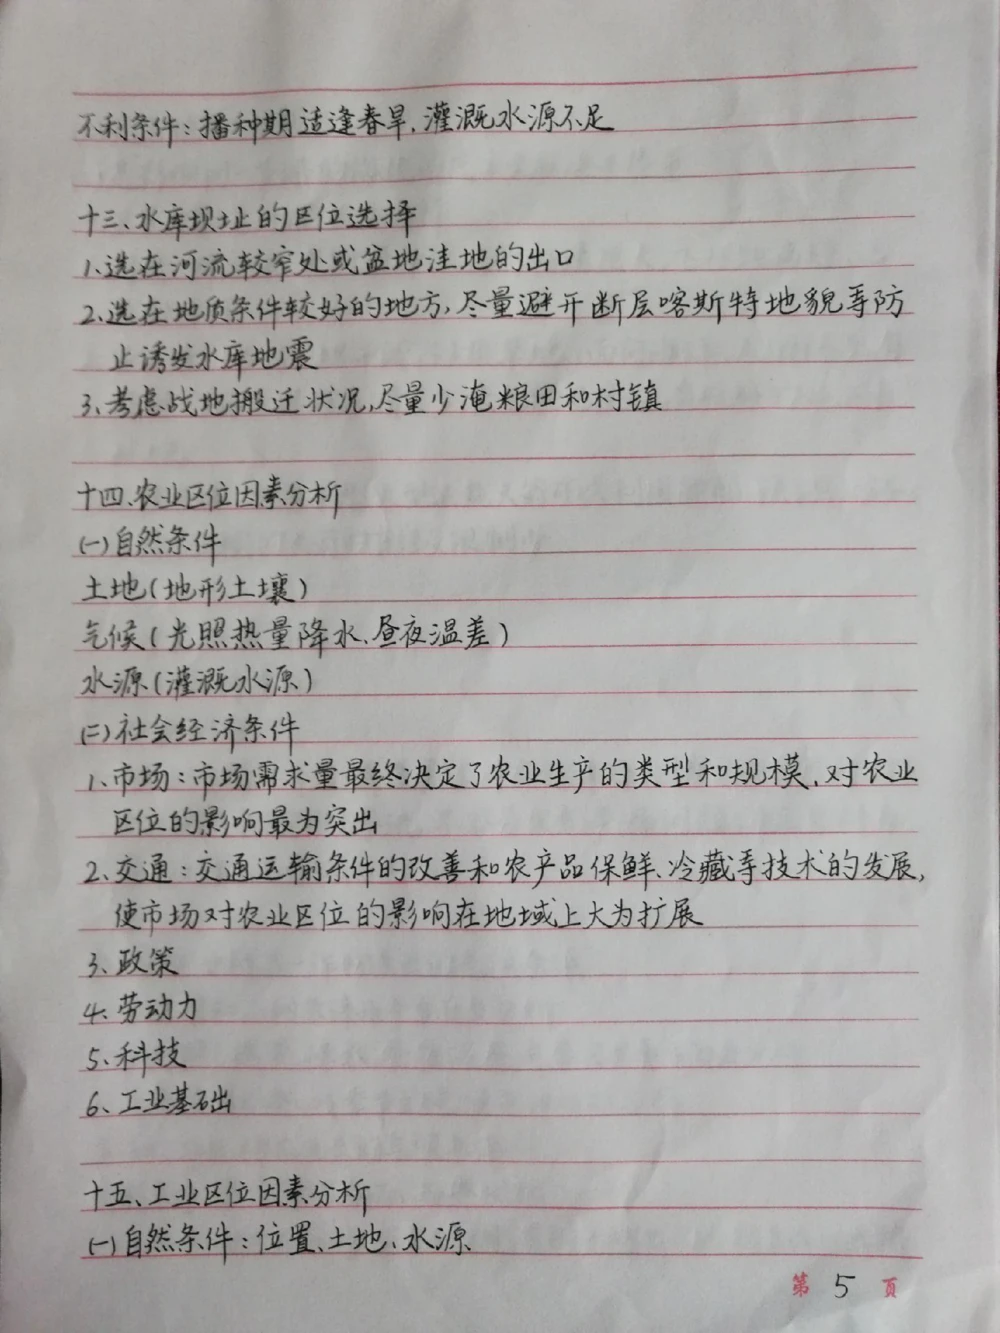 不利条件：播种期适逢春旱，灌溉水源不足
十三、水库坝址的区位选择
1、选在河流较窄处或盆地洼地的出口
2、选在地质条件较好的地方，尽量避开断层喀斯特地貌等防
止诱发水库地震
3、考虑战地搬迁状况，尽量少淹粮田和村镇
十四、农业区位因素分析
(一)自然条件
土地(地形土壤)
气候(光照热量降水、昼夜温差)
水源(灌溉水源)
(二)社会经济条件
1、市场：市场需求量最终决定了农业生产的类型和规模，对农业
区位的影响最为突出
2、交通：交通运输条件的改善和农产品保鲜、冷藏等技术的发展，
使市场对农业区位的影响在地域上大为扩展
3、政策
4、劳动力
5、科技
6、工业基础
十五、工业区位因素分析
(一)自然条件：位置、土地、水源
第 5 页